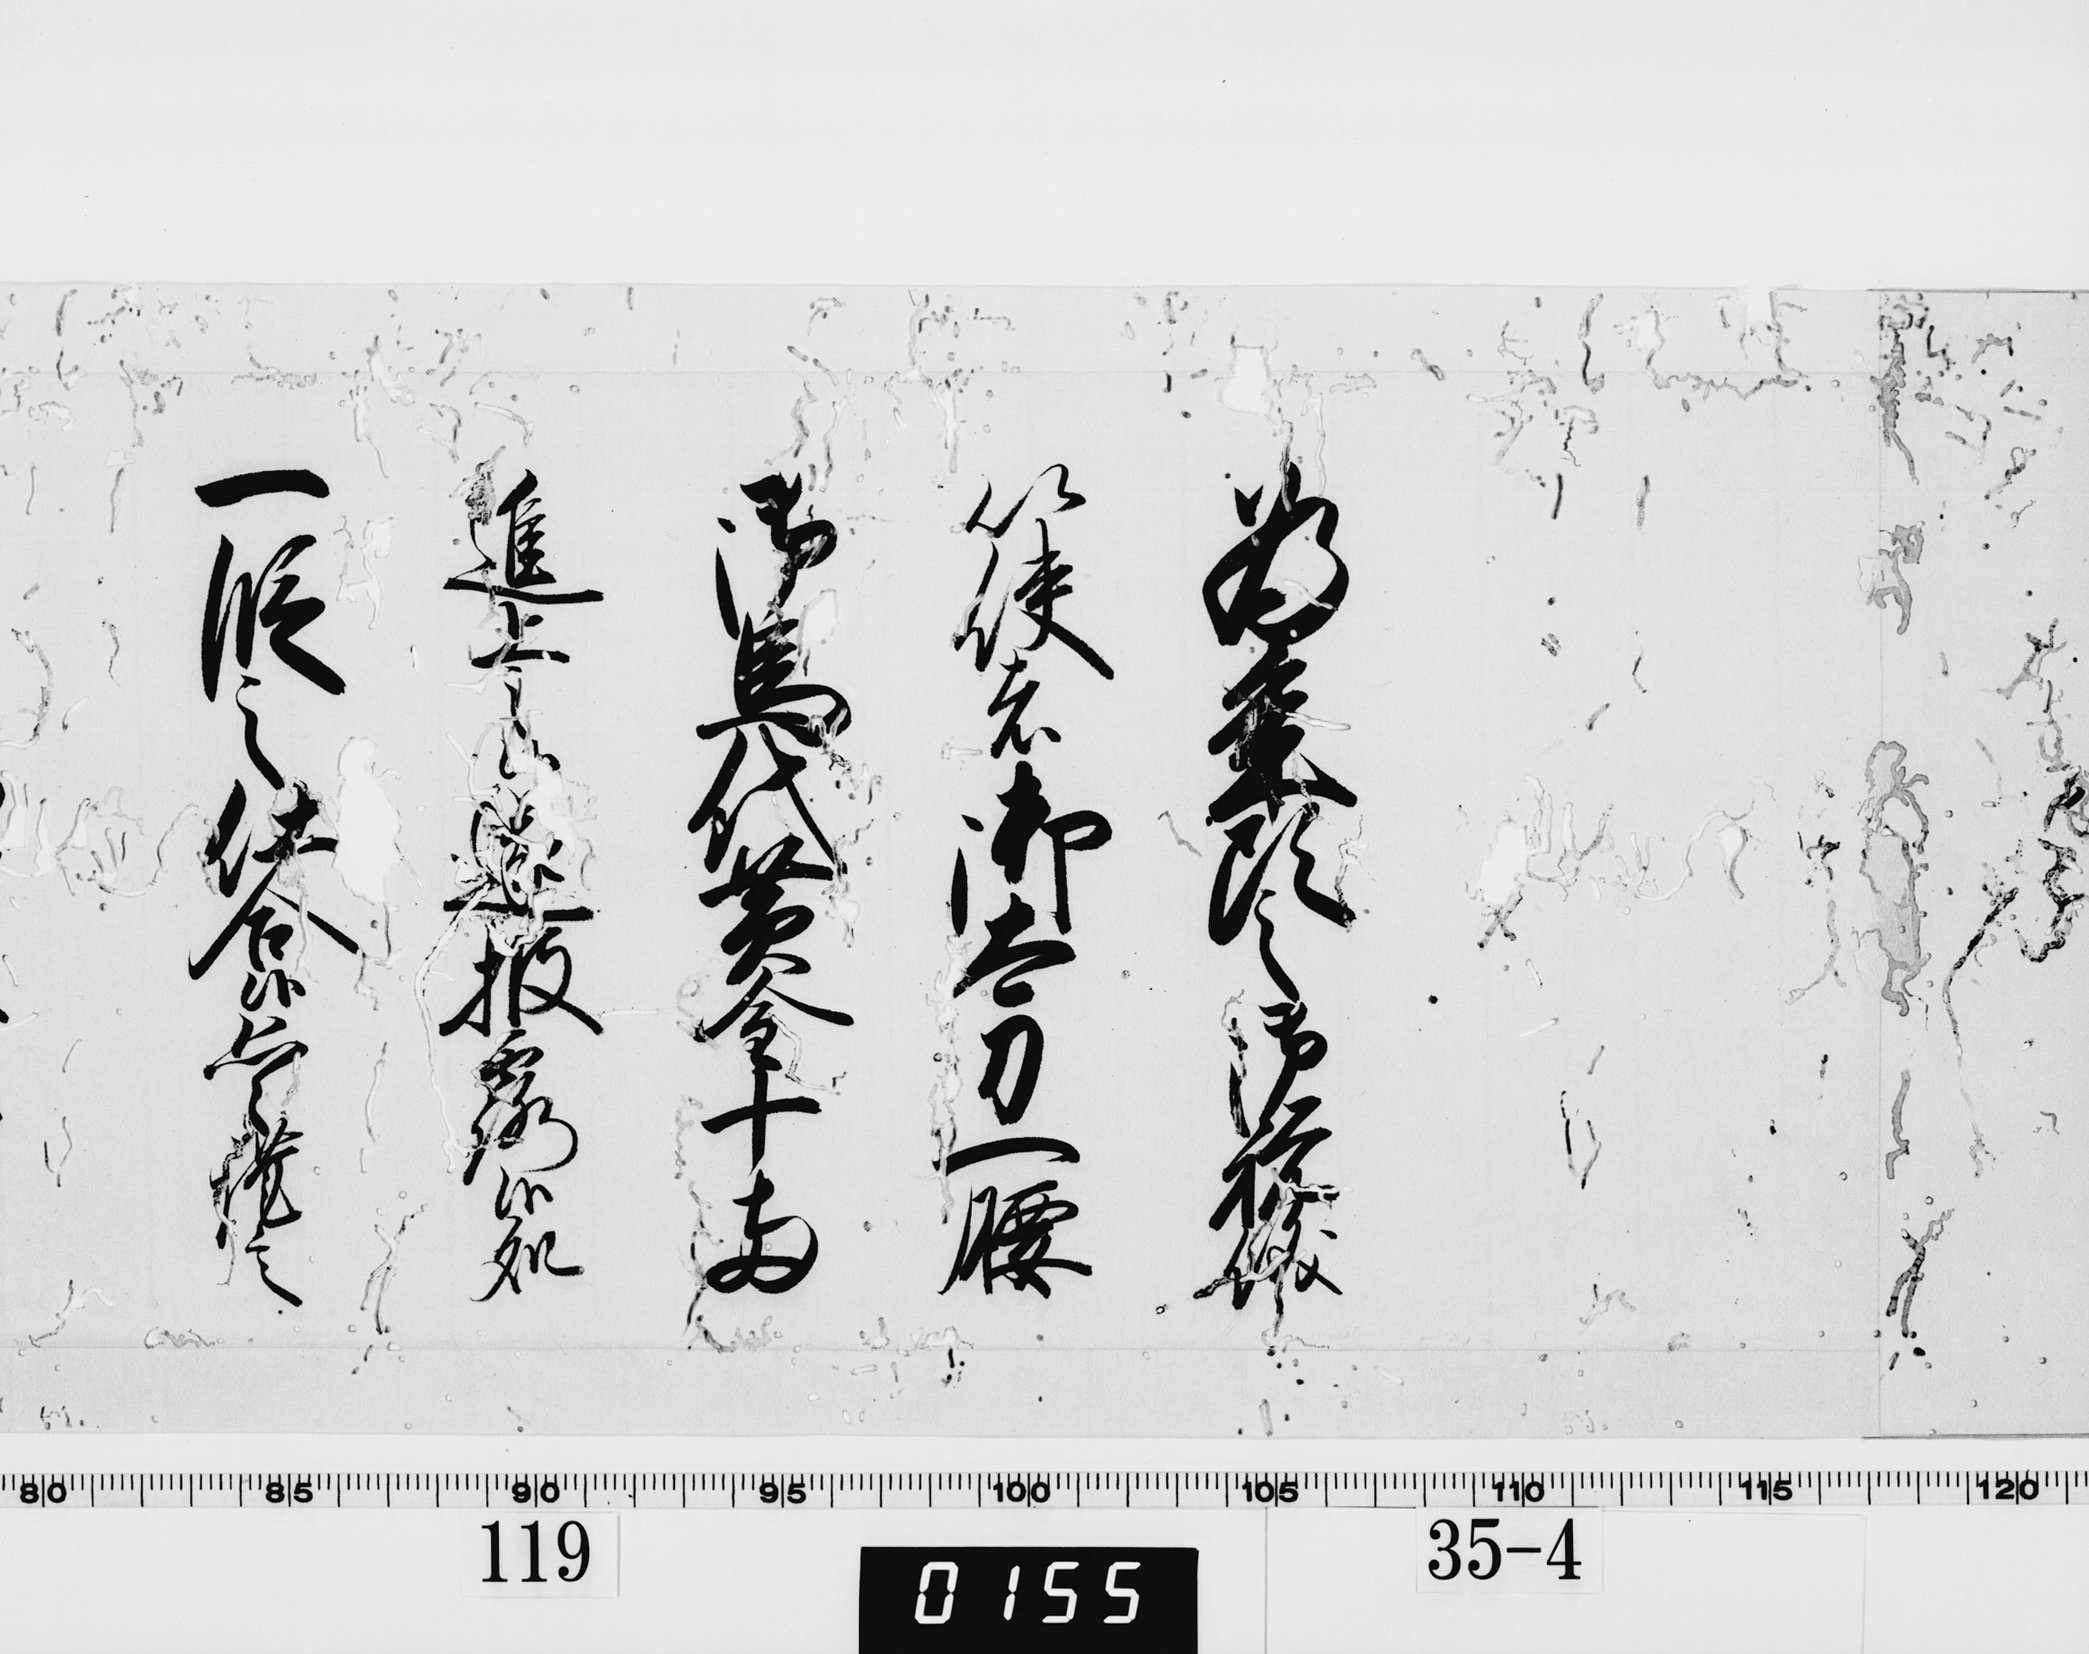 為之御祝儀
以使者御太刀一腰
御馬代黄金十両
進上候遂披露候処
一段之仕合候
119
0155
35-4
80 85 90 95 100 105 110 115 120